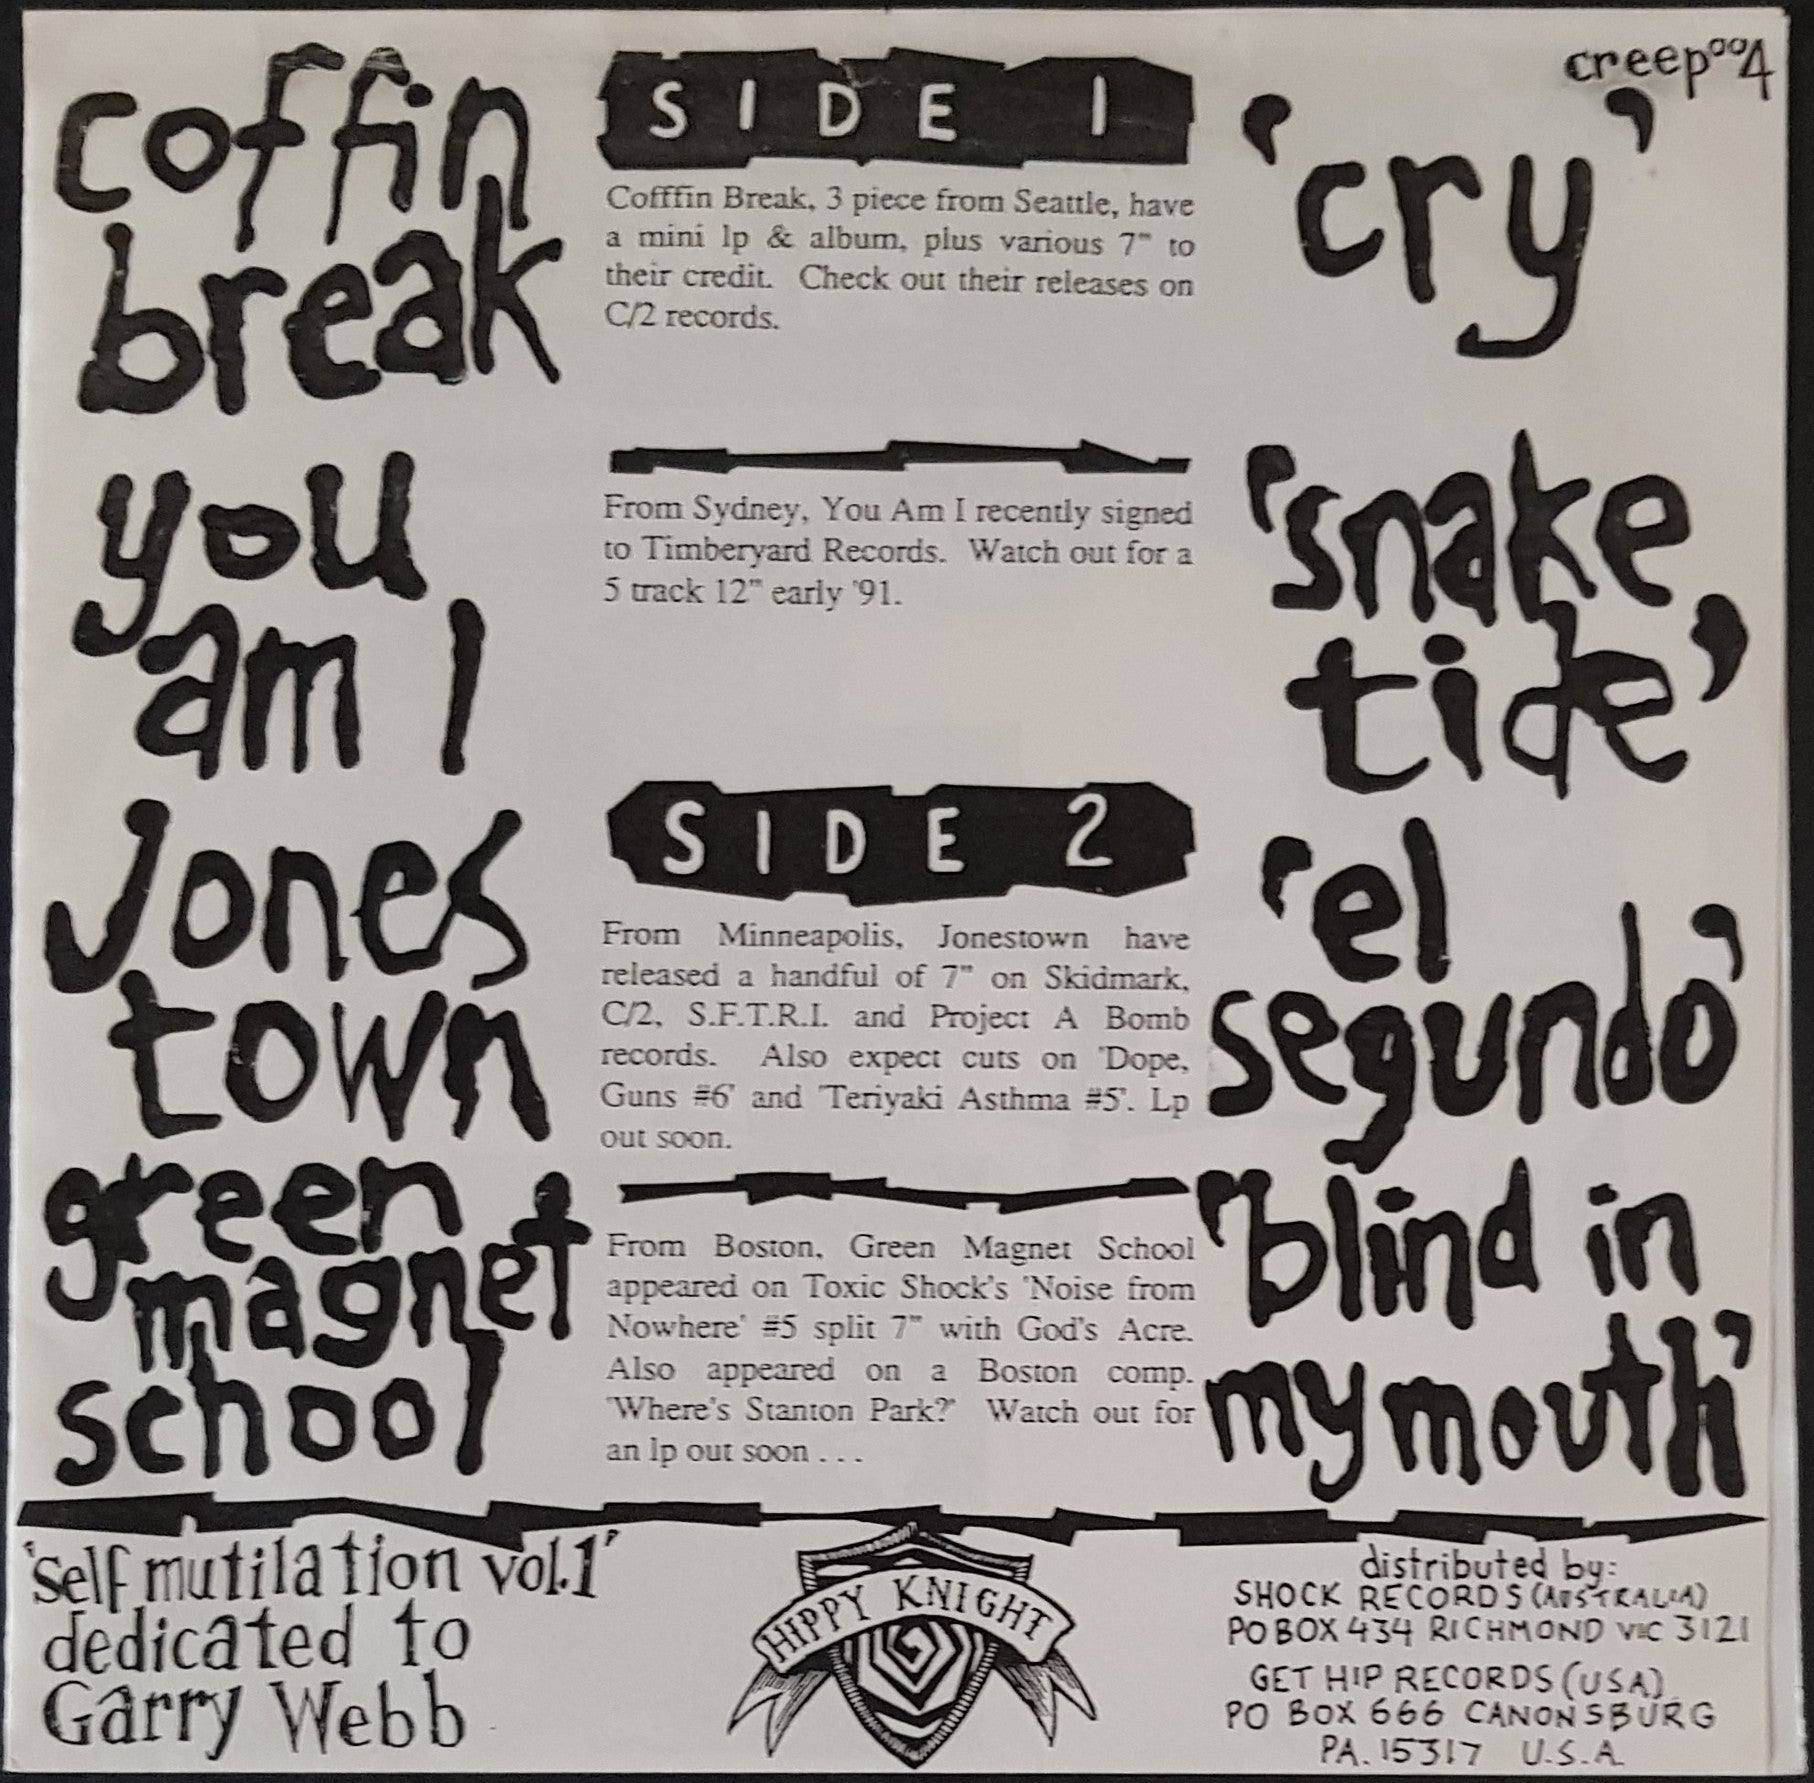 creep004
coffin
break
SIDE 1
Cofffin Break, 3 piece from Seattle, have
a mini lp & album, plus various 7" to
their credit. Check out their releases on
C/2 records.
'cry'
you
am I
From Sydney, You Am I recently signed
to Timberyard Records. Watch out for a
5 track 12" early '91.
'snake
tide'
SIDE 2
Jones
town
From Minneapolis, Jonestown have
released a handful of 7" on Skidmark,
C/2, S.F.T.R.I. and Project A Bomb
records. Also expect cuts on 'Dope,
Guns #6' and 'Teriyaki Asthma #5'. Lp
out soon.
'el
segundo'
green
magnet
school
From Boston, Green Magnet School
appeared on Toxic Shock's 'Noise from
Nowhere' #5 split 7" with God's Acre.
Also appeared on a Boston comp.
'Where's Stanton Park?' Watch out for
an lp out soon . . .
'blind in
my mouth'
'self mutilation vol.1'
dedicated to
Garry Webb
HIPPY KNIGHT
distributed by:
SHOCK RECORDS (AUSTRALIA)
PO BOX 434 RICHMOND VIC 3121
GET HIP RECORDS (USA)
PO BOX 666 CANONSBURG
PA. 15317 U.S.A.